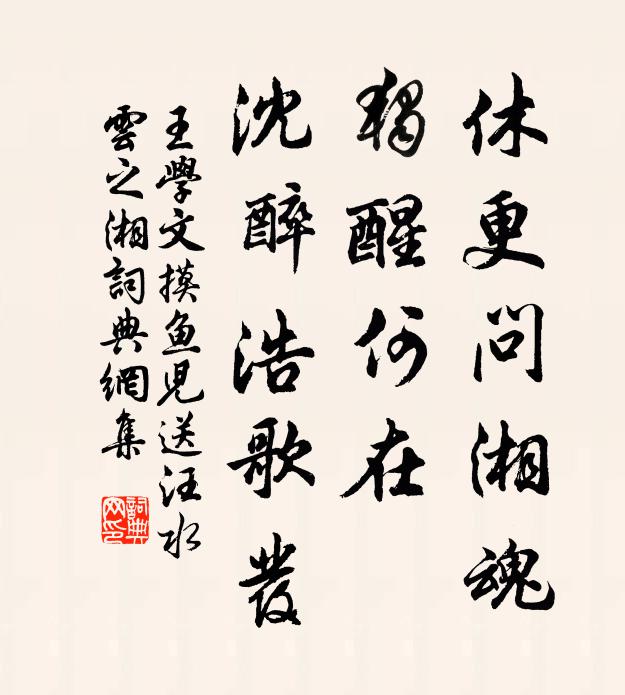 休更問湘魂
獨醒何在
沈醉浩歌發
王學文摸魚兒送汪水
雲之湘詞典網集
詞典
网印